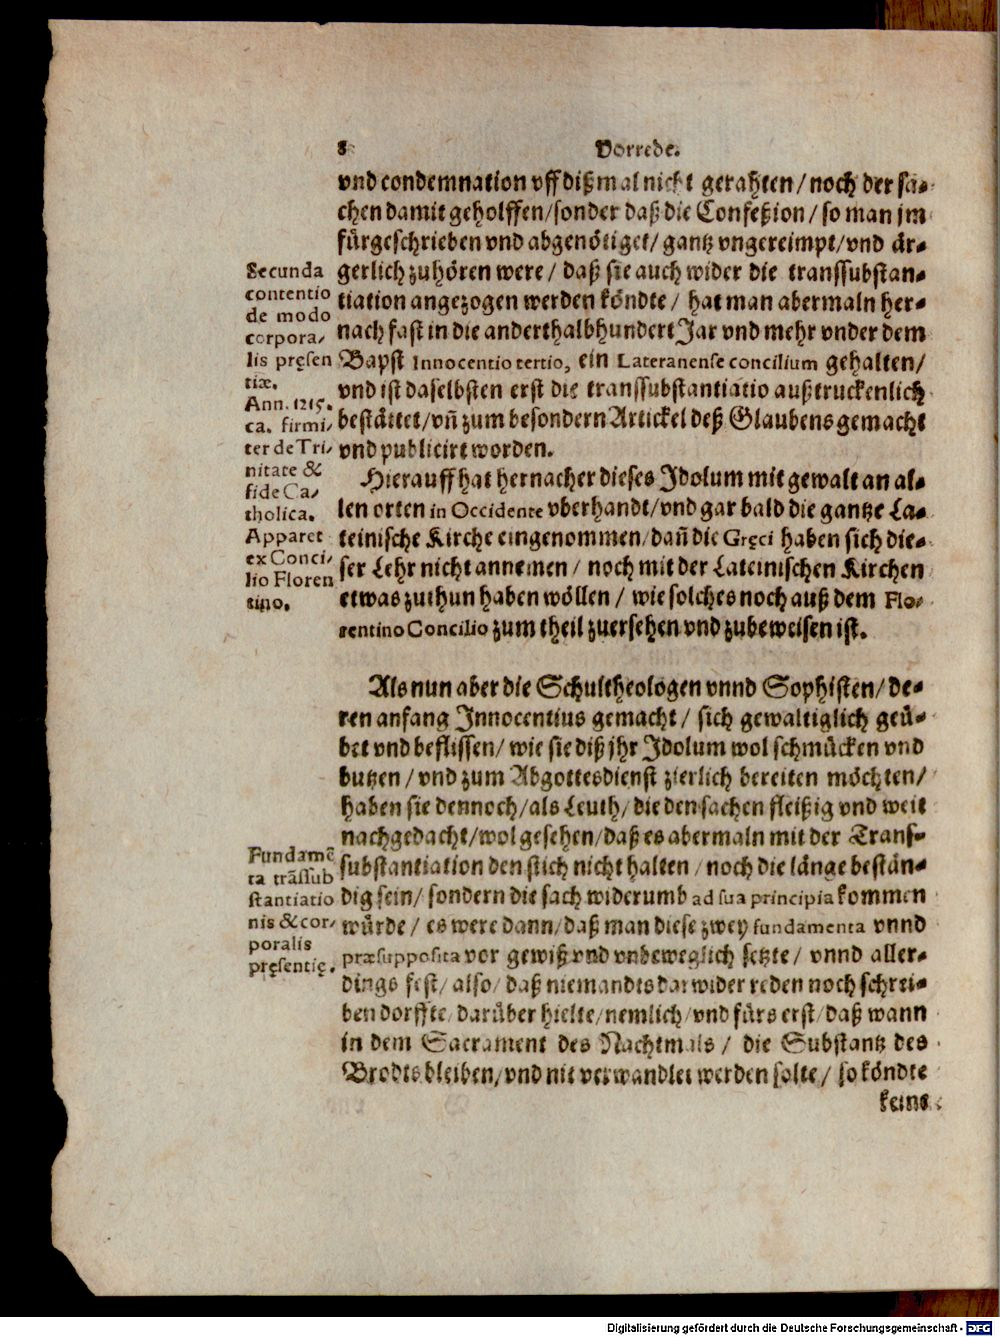 8 Vorrede.
vnd condemnation vff diß mal nicht gerahten / noch der sa-
chen damit geholffen / sonder daß die Confeßion / so man jm
fürgeschrieben vnd abgenötiget / gantz vngereimpt / vnd är-
gerlich zuhören were / daß sie auch wider die transsubstan-
tiation angezogen werden köndte / hat man abermaln her-
nach fast in die anderthalbhundert Jar vnd mehr vnder dem
Bapst Innocentio tertio, ein Lateranense concilium gehalten /
vnd ist daselbsten erst die transsubstantiatio außtruckenlich
bestättet / vñ zum besondern Artickel deß Glaubens gemacht
vnd publicirt worden.
Secunda
contentio
de modo
corpora-
lis pręsen
tiæ.
Ann. 1215.
ca. firmi-
ter de Tri-
nitate &
fide Ca-
tholica.
Hierauff hat hernacher dieses Idolum mit gewalt an al-
len orten in Occidente vberhandt / vnd gar bald die gantze La-
teinische Kirche eingenommen / dañ die Gręci haben sich die-
ser Lehr nicht annemen / noch mit der Lateinischen Kirchen
etwas zuthun haben wöllen / wie solches noch auß dem Flo-
rentino Concilio zum theil zuersehen vnd zubeweisen ist.
Apparet
ex Conci-
lio Floren
tino.
Als nun aber die Schultheologen vnnd Sophisten / de-
ren anfang Innocentius gemacht / sich gewaltiglich geü-
bet vnd beflissen / wie sie diß jhr Idolum wol schmücken vnd
butzen / vnd zum Abgottesdienst zierlich bereiten möchten /
haben sie dennoch / als Leuth / die den sachen fleißig vnd weit
nachgedacht / wol gesehen / daß es abermaln mit der Trans-
substantiation den stich nicht halten / noch die länge bestän-
dig sein / sondern die sach widerumb ad sua principia kommen
würde / es were dann / daß man diese zwey fundamenta vnnd
præsupposita vor gewiß vnd vnbeweglich setzte / vnnd aller-
dings fest / also / daß niemandts darwider reden noch schrei-
ben dorffte / darüber hielte / nemlich / vnd fürs erst / daß wann
in dem Sacrament des Nachtmals / die Substantz des
Brodts bleiben / vnd nit verwandlet werden solte / so köndte
Fundamē
ta trāssub
stantiatio
nis & cor-
poralis
pręsentię.
keins
Digitalisierung gefördert durch die Deutsche Forschungsgemeinschaft - DFG